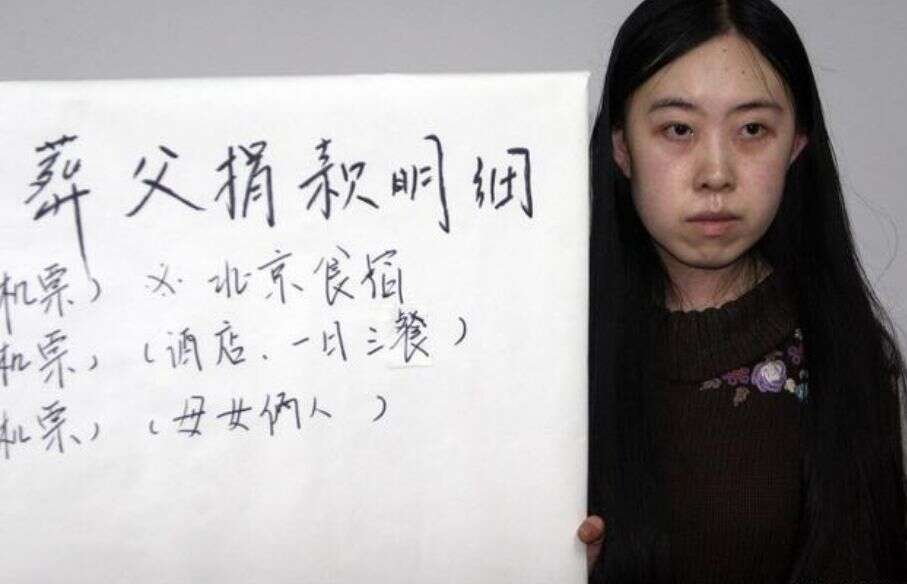 葬父捐款明细
机票） ※ 北京食宿
机票）（酒店、一日三餐）
机票）（母女俩人）